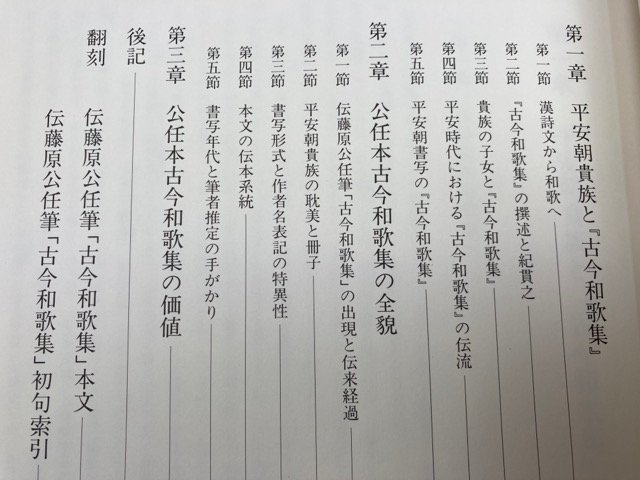 第一章　平安朝貴族と『古今和歌集』
第一節　漢詩文から和歌へ
第二節　『古今和歌集』の撰述と紀貫之
第三節　貴族の子女と『古今和歌集』
第四節　平安時代における『古今和歌集』の伝流
第五節　平安朝書写の『古今和歌集』
第二章　公任本古今和歌集の全貌
第一節　伝藤原公任筆「古今和歌集」の出現と伝来経過
第二節　平安朝貴族の耽美と冊子
第三節　書写形式と作者名表記の特異性
第四節　本文の伝本系統
第五節　書写年代と筆者推定の手がかり
第三章　公任本古今和歌集の価値
後記
翻刻　伝藤原公任筆「古今和歌集」本文
伝藤原公任筆「古今和歌集」初句索引